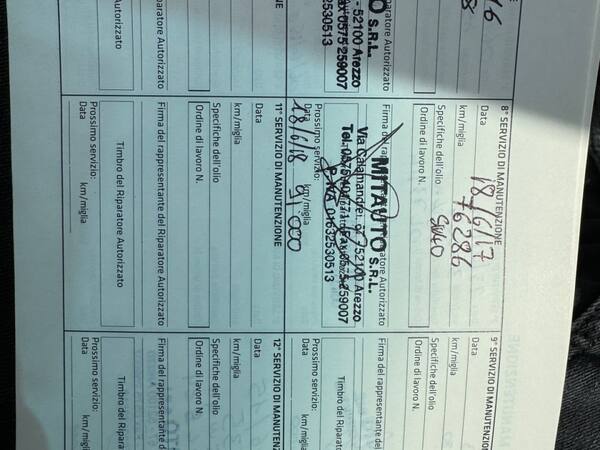 16
8
O S.R.L.
- 52100 Arezzo
Fax 0575 259007
32530513
paratore Autorizzato
8° SERVIZIO DI MANUTENZIONE
Data 18/6/17
km/miglia 76286
Specifiche dell'olio 5W40
Ordine di lavoro N.
Firma del
aratore Autorizzato
MITAUTO S.R.L.
52100 Arezzo
259007
P. IVA 01632530513
Prossimo servizio:
Data km/miglia
18/6/18 91000
9° SERVIZIO DI MANUTENZIONE
Data
km/miglia
Specifiche dell'olio
Ordine di lavoro N.
Firma del rappresentante del
Timbro del Ripara
Prossimo servizio:
Data km/miglia
Riparatore Autorizzato
Autorizzato
11° SERVIZIO DI MANUTENZIONE
Data
km/miglia
Specifiche dell'olio
Ordine di lavoro N.
Firma del rappresentante del Riparatore Autorizzato
Timbro del Riparatore Autorizzato
Prossimo servizio:
Data km/miglia
12° SERVIZIO DI MANUTENZIONE
Data
km/miglia
Specifiche dell'olio
Ordine di lavoro N.
Firma del rappresentante d
Timbro del Ripara
Prossimo servizio:
Data km/miglia